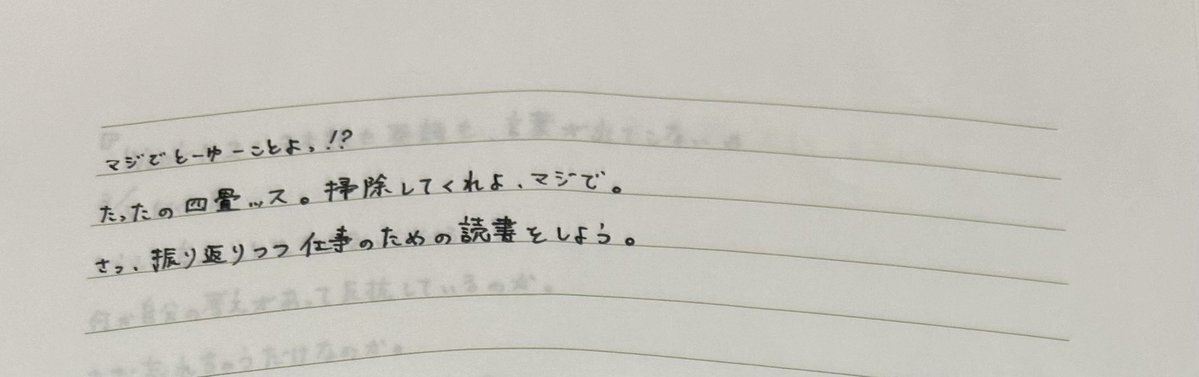 マジでど-ゆ-ことよっ!?
たったの四畳ッス。掃除してくれよ、マジで。
さっ、振り返りつつ仕事のための読書をしよう。